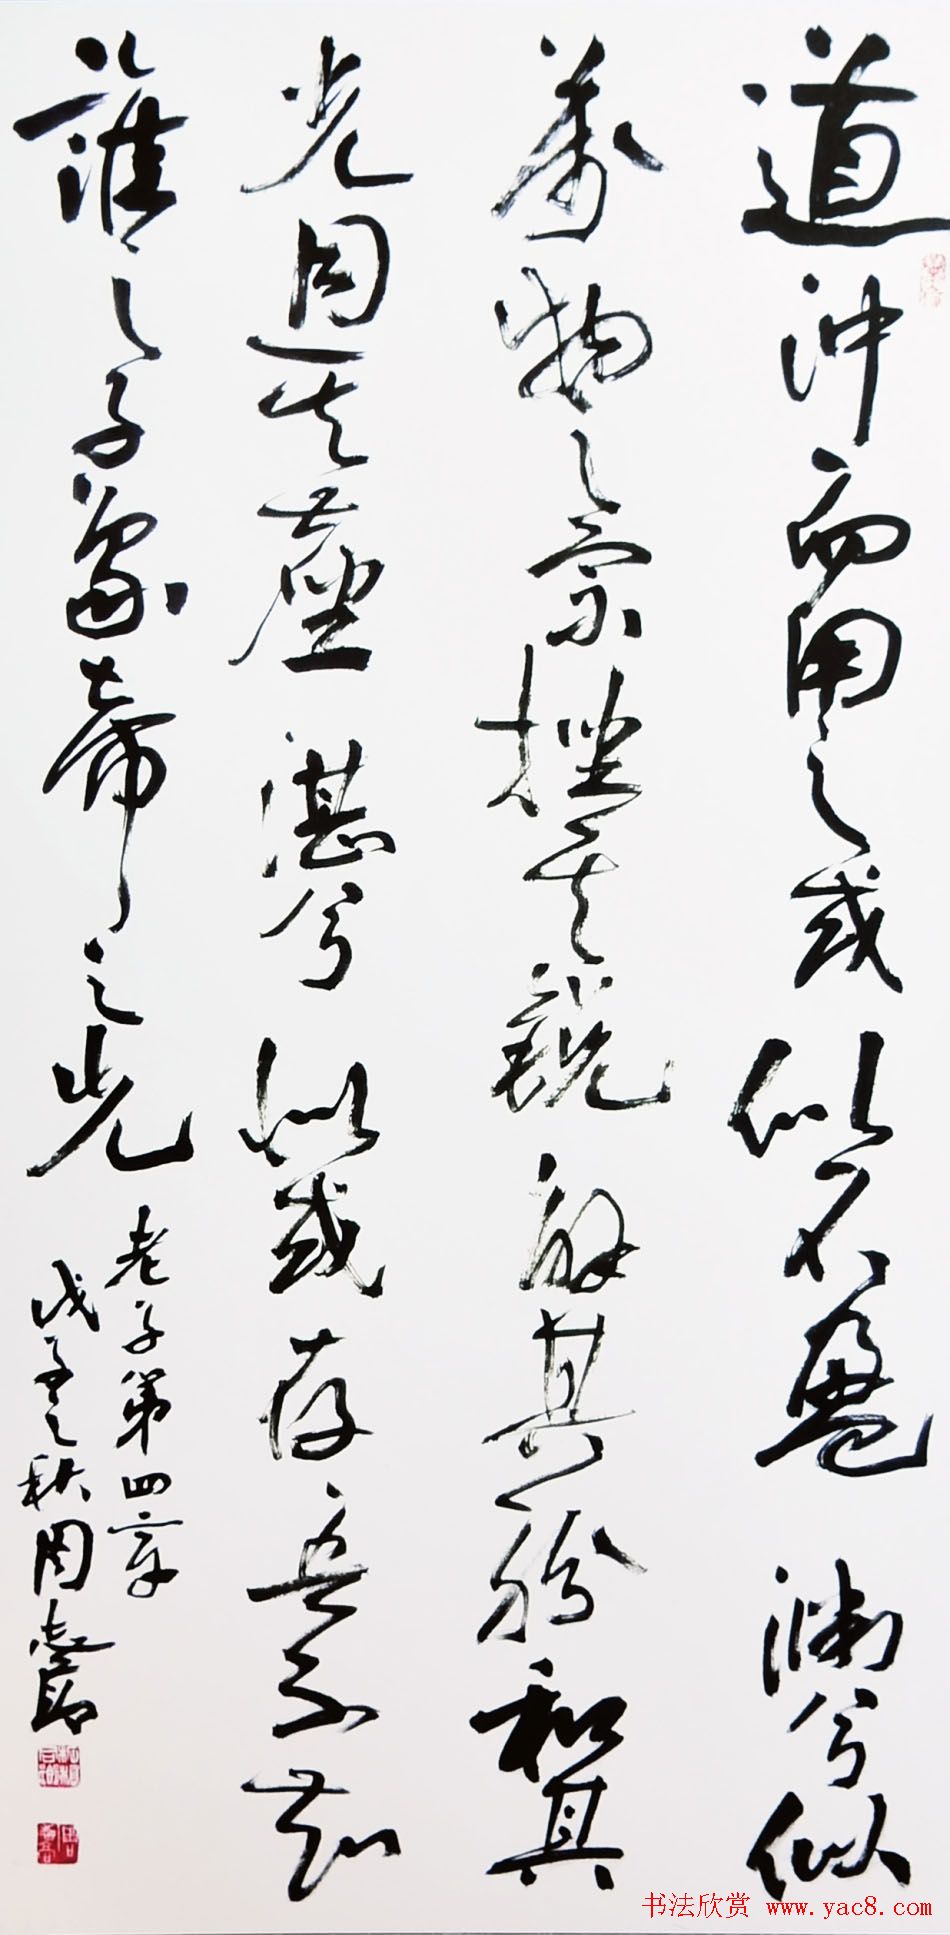 道沖而用之或似不盈渊兮似
萬物之宗挫其銳解其紛和其
光同其塵湛兮似或存吾不知
誰之子象帝之先
老子第四章
戊子之秋周
书法欣赏 www.yac8.com